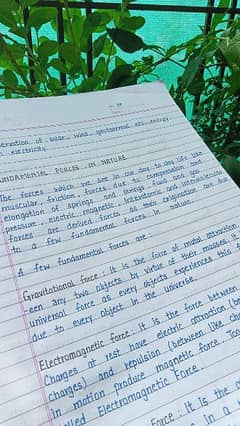 ervation of solar, wind, geothermal etc. energy
electricity
UNDAMENTAL FORCES IN NATURE
The forces which we see in our day to day life like
muscular, friction, forces due to compression and
elongation of springs and strings, fluid and gas
pressure, electric, magnetic, interatomic and intermolecular
forces are derived forces as their originations are due
to a few fundamental forces in nature.
A few fundamental forces are:
Gravitational force: It is the force of mutual attraction
een any two objects by virtue of their masses. It
universal force as every objects experiences this
due to every object in the universe.
Electromagnetic force: It is the force between
Charges at rest have electric attraction (be
charges) and repulsion (between like char
in motion produce magnetic force. Too
lled Electromagnetic Force.
Force: It is the